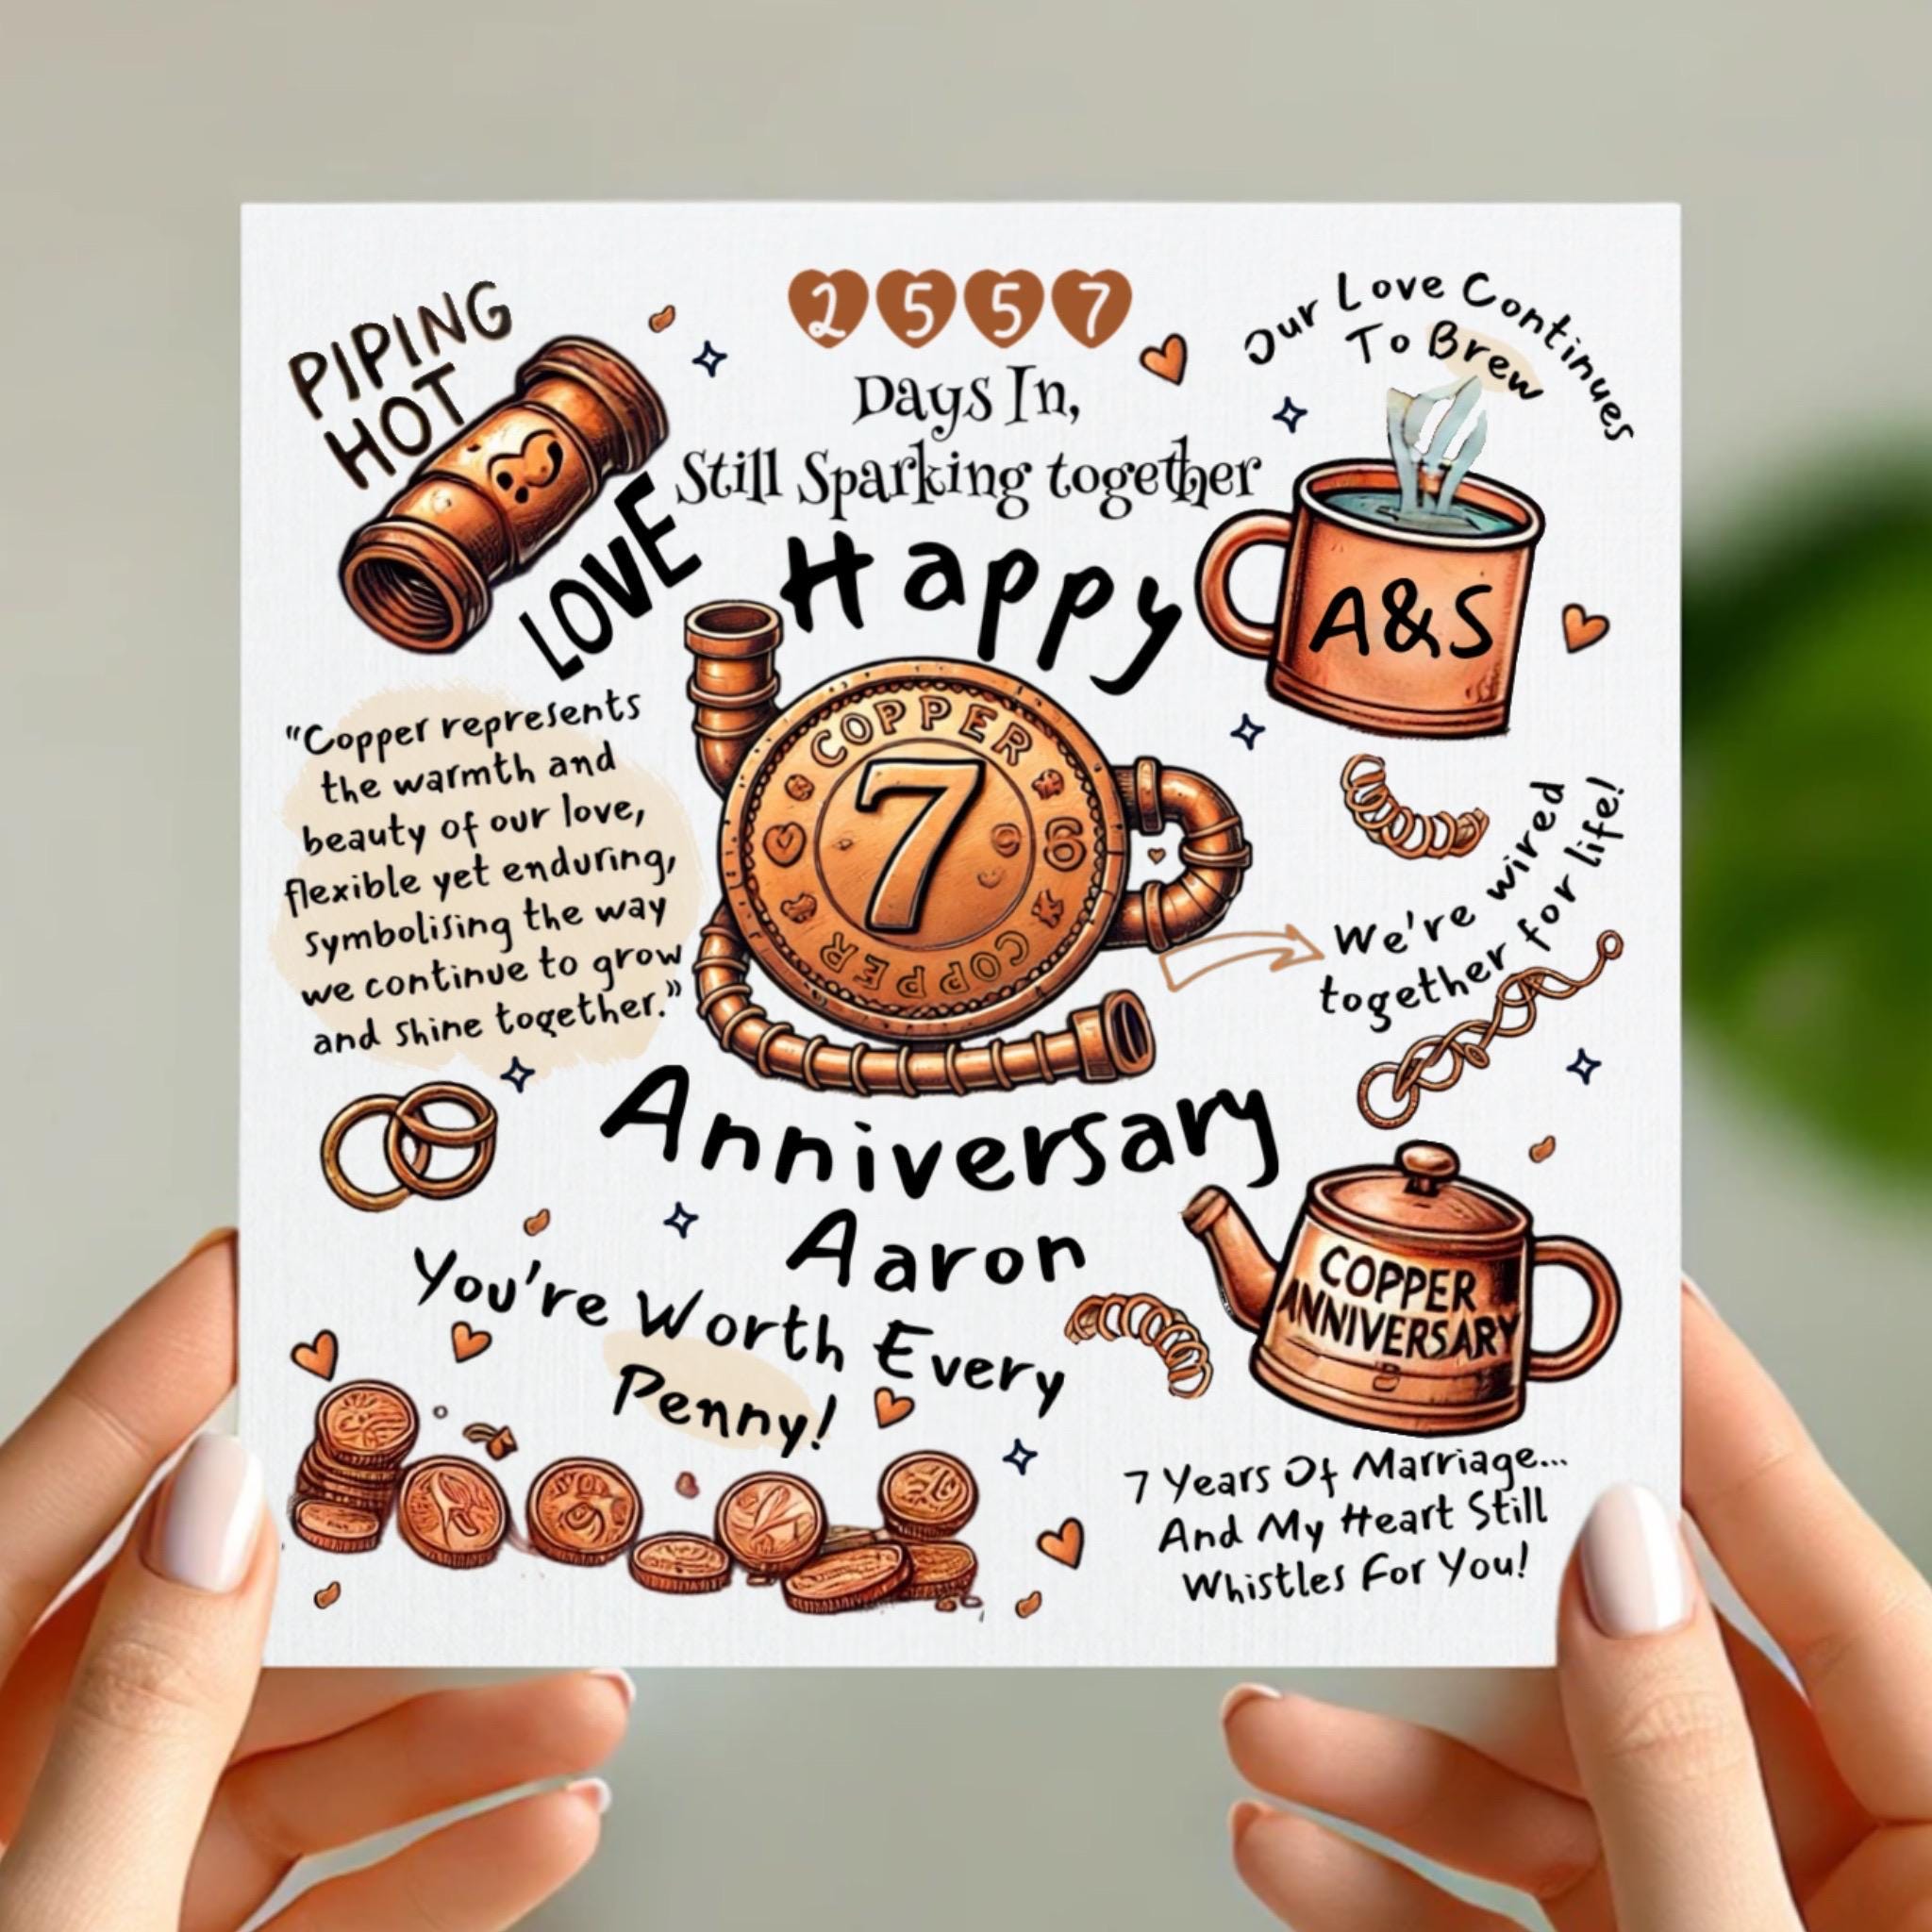 PIPING
HOT
LOVE
2557
Days In,
Still Sparking together
Our Love Continues
To Brew
A&S
Happy
COPPER
7
6
COPPER
"Copper represents
the warmth and
beauty of our love,
flexible yet enduring,
symbolising the way
we continue to grow
and shine together."
We're wired
together for life!
Anniversary
Aaron
You're Worth Every
Penny!
COPPER
ANNIVERSARY
7 Years Of Marriage...
And My Heart Still
Whistles For You!